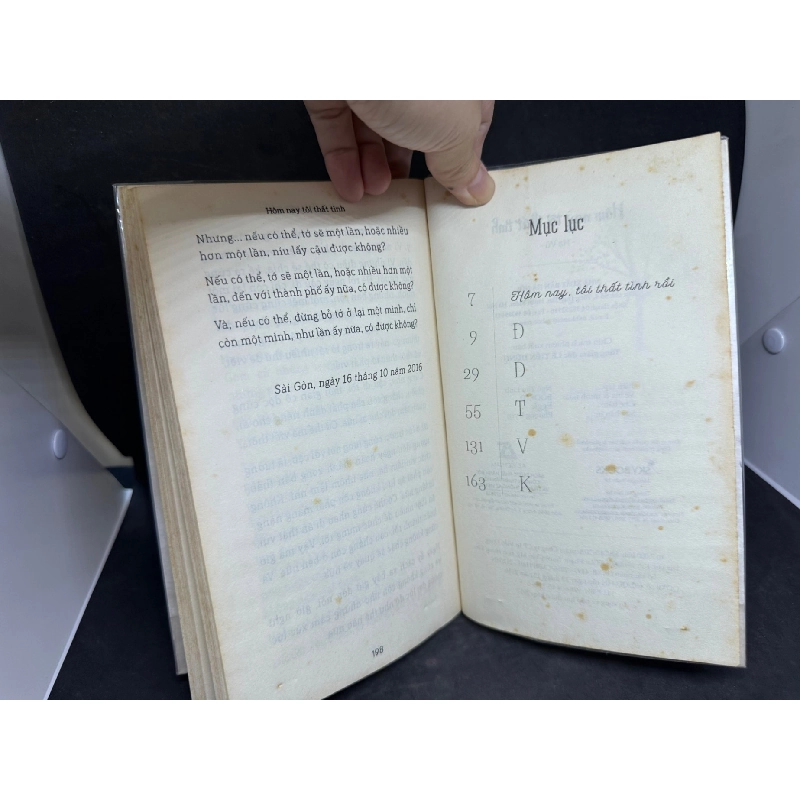 Hôm nay tôi thất tình
Nhưng... nếu có thể, tớ sẽ một lần, hoặc nhiều
hơn một lần, níu lấy cậu được không?
Nếu có thể, tớ sẽ một lần, hoặc nhiều hơn một
lần, đến với thành phố ấy nữa, có được không?
Và, nếu có thể, đừng bỏ tớ ở lại một mình, chỉ
còn một mình, như lần ấy nữa, có được không?
Sài Gòn, ngày 16 tháng 10 năm 2016
198
Mục lục
7 Hôm nay, tôi thất tình rồi
9 Đ
29 D
55 T
131 V
163 K